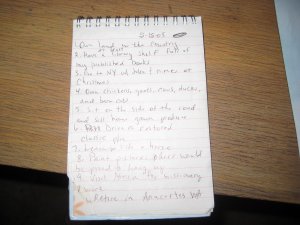 5-15-05
Own land in the country
2. Have a library shelf full of
my published books
3. Go to NY w/ Mom & nieces at
Christmas
4. Own chickens, goats, cows, ducks,
and bunnies
5. Sit on the side of the road
and sell home grown produce
6. Drive a restored
classic
7. a house
8. Paint pictures place would
be proud to hang
9. Visit the missionary
Retire in Anacortes WA